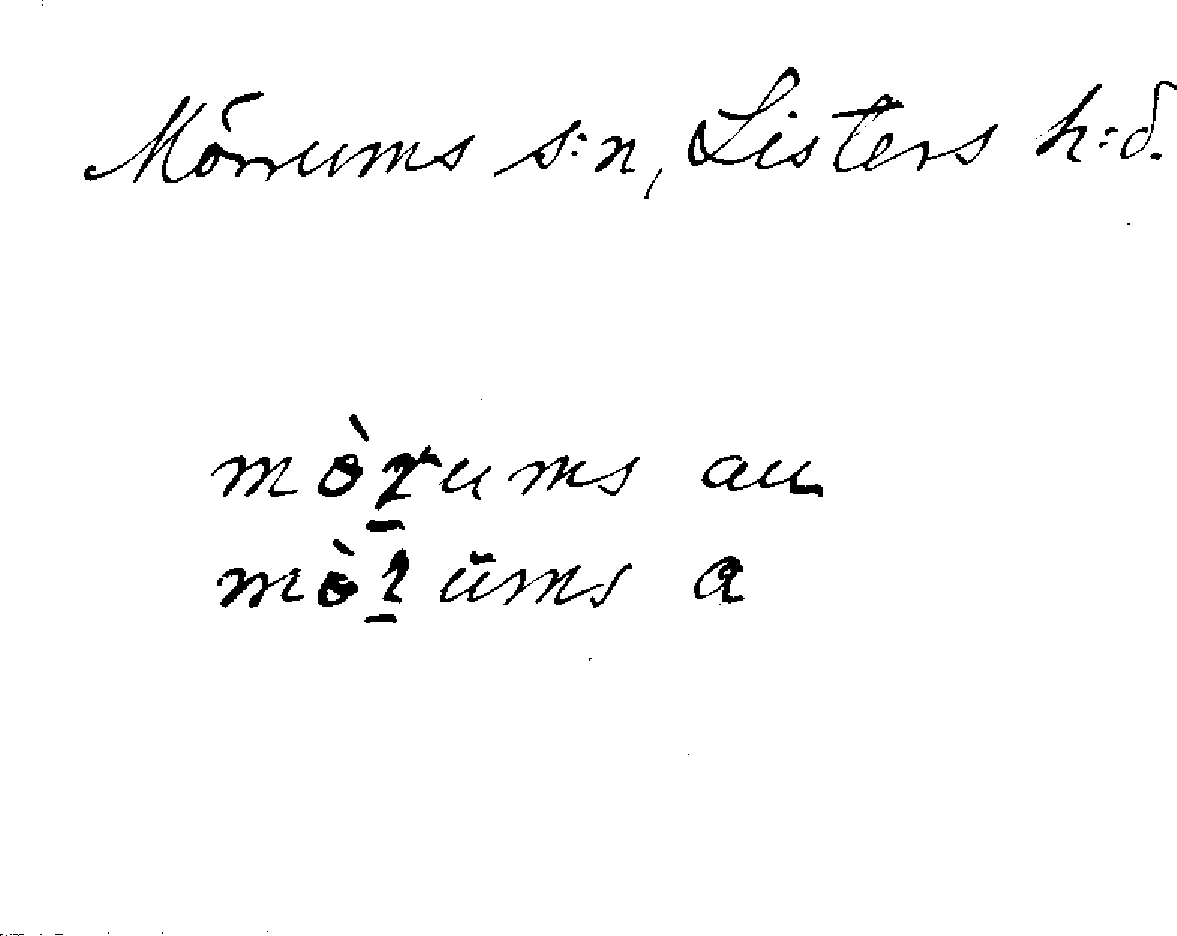 Mörrums s:n, Listers h:d.
mòrums au
mòrŭms a